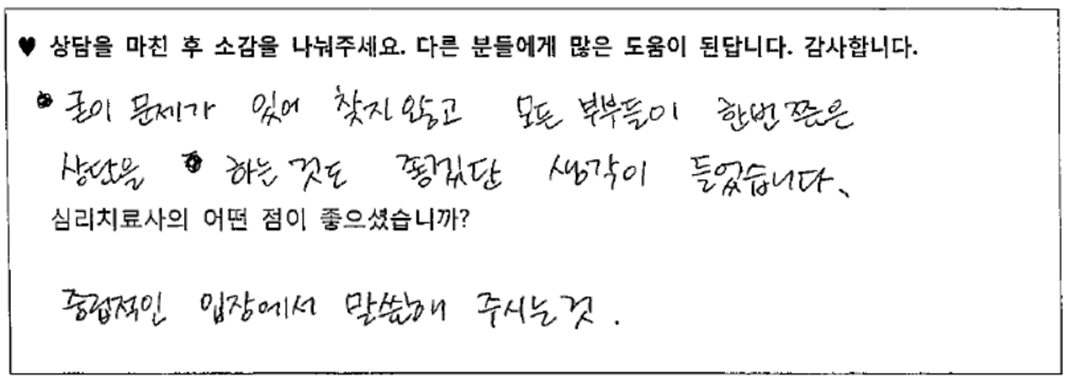 ♥ 상담을 마친 후 소감을 나눠주세요. 다른 분들에게 많은 도움이 된답니다. 감사합니다.
굳이 문제가 있어 찾지 않고 모든 부부들이 한번쯤은
상담을 하는 것도 좋겠단 생각이 들었습니다.
심리치료사의 어떤 점이 좋으셨습니까?
중립적인 입장에서 말씀해 주시는것.